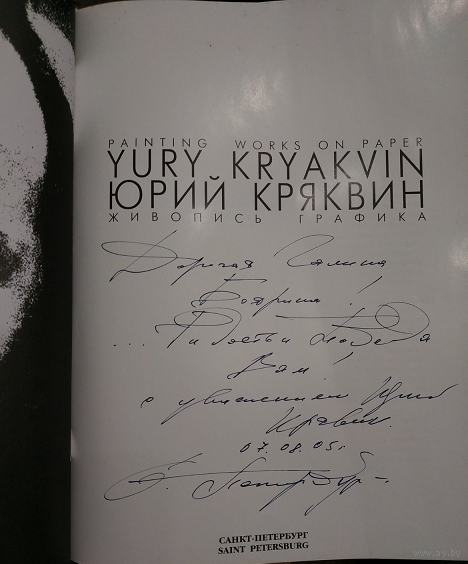 PAINTING WORKS ON PAPER
YURY KRYAKVIN
ЮРИЙ КРЯКВИН
ЖИВОПИСЬ ГРАФИКА
Дорогая Галина
! 
... Радости и
Вам!
с уважением Юрий
Кряквин
07.08.05г.
С. Петербург
САНКТ-ПЕТЕРБУРГ
SAINT PETERSBURG
www.ay.by